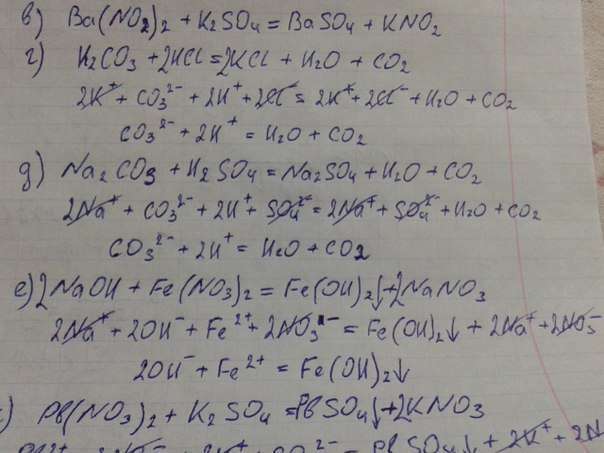 в) Ba(NO2)2 + K2SO4 = BaSO4 + KNO2
г) K2CO3 + 2HCl = 2KCl + H2O + CO2
2K⁺ + CO3²⁻ + 2H⁺ + 2Cl⁻ = 2K⁺ + 2Cl⁻ + H2O + CO2
CO3²⁻ + 2H⁺ = H2O + CO2
д) Na2CO3 + H2SO4 = Na2SO4 + H2O + CO2
2Na⁺ + CO3²⁻ + 2H⁺ + SO4²⁻ = 2Na⁺ + SO4²⁻ + H2O + CO2
CO3²⁻ + 2H⁺ = H2O + CO2
е) 2NaOH + Fe(NO3)2 = Fe(OH)2↓ + 2NaNO3
2Na⁺ + 2OH⁻ + Fe²⁺ + 2NO3⁻ = Fe(OH)2↓ + 2Na⁺ + 2NO3⁻
2OH⁻ + Fe²⁺ = Fe(OH)2↓
) Pb(NO3)2 + K2SO4 = PbSO4↓ + 2KNO3
PbSO4↓ + 2K⁺ + 2N